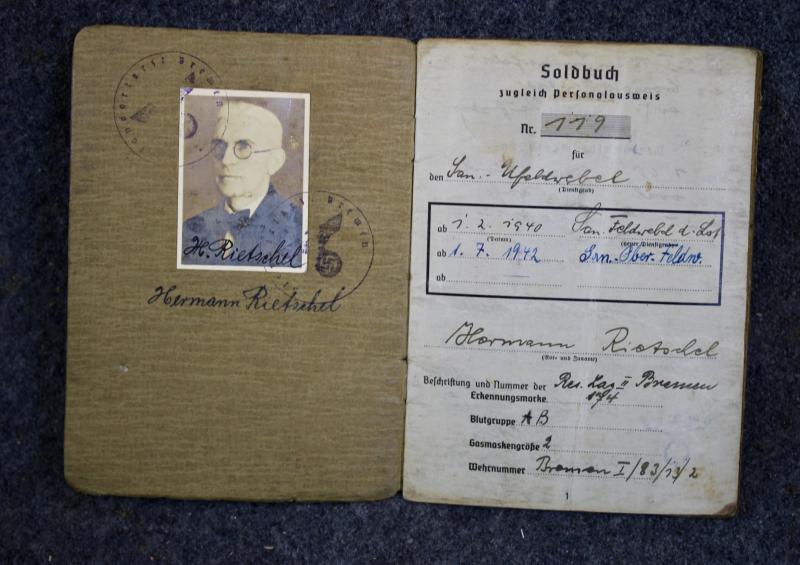 H. Rietschel
Hermann Rietschel
Soldbuch
zugleich Personalausweis
Nr. 119
für
den San.-Ufeldwebel
(Dienstgrad)
ab 1. 2. 1940 San. Feldwebel d.
(Datum) (neuer Dienstgrad)
ab 1. 7. 1942 San.-Ober-Feldw.
ab
Hermann Rietschel
(Vor- und Zuname)
Beschriftung und Nummer der Res. Laz II Bremen
Erkennungsmarke 174
Blutgruppe AB
Gasmaskengröße 2
Wehrnummer Bremen I/83/13/2
1